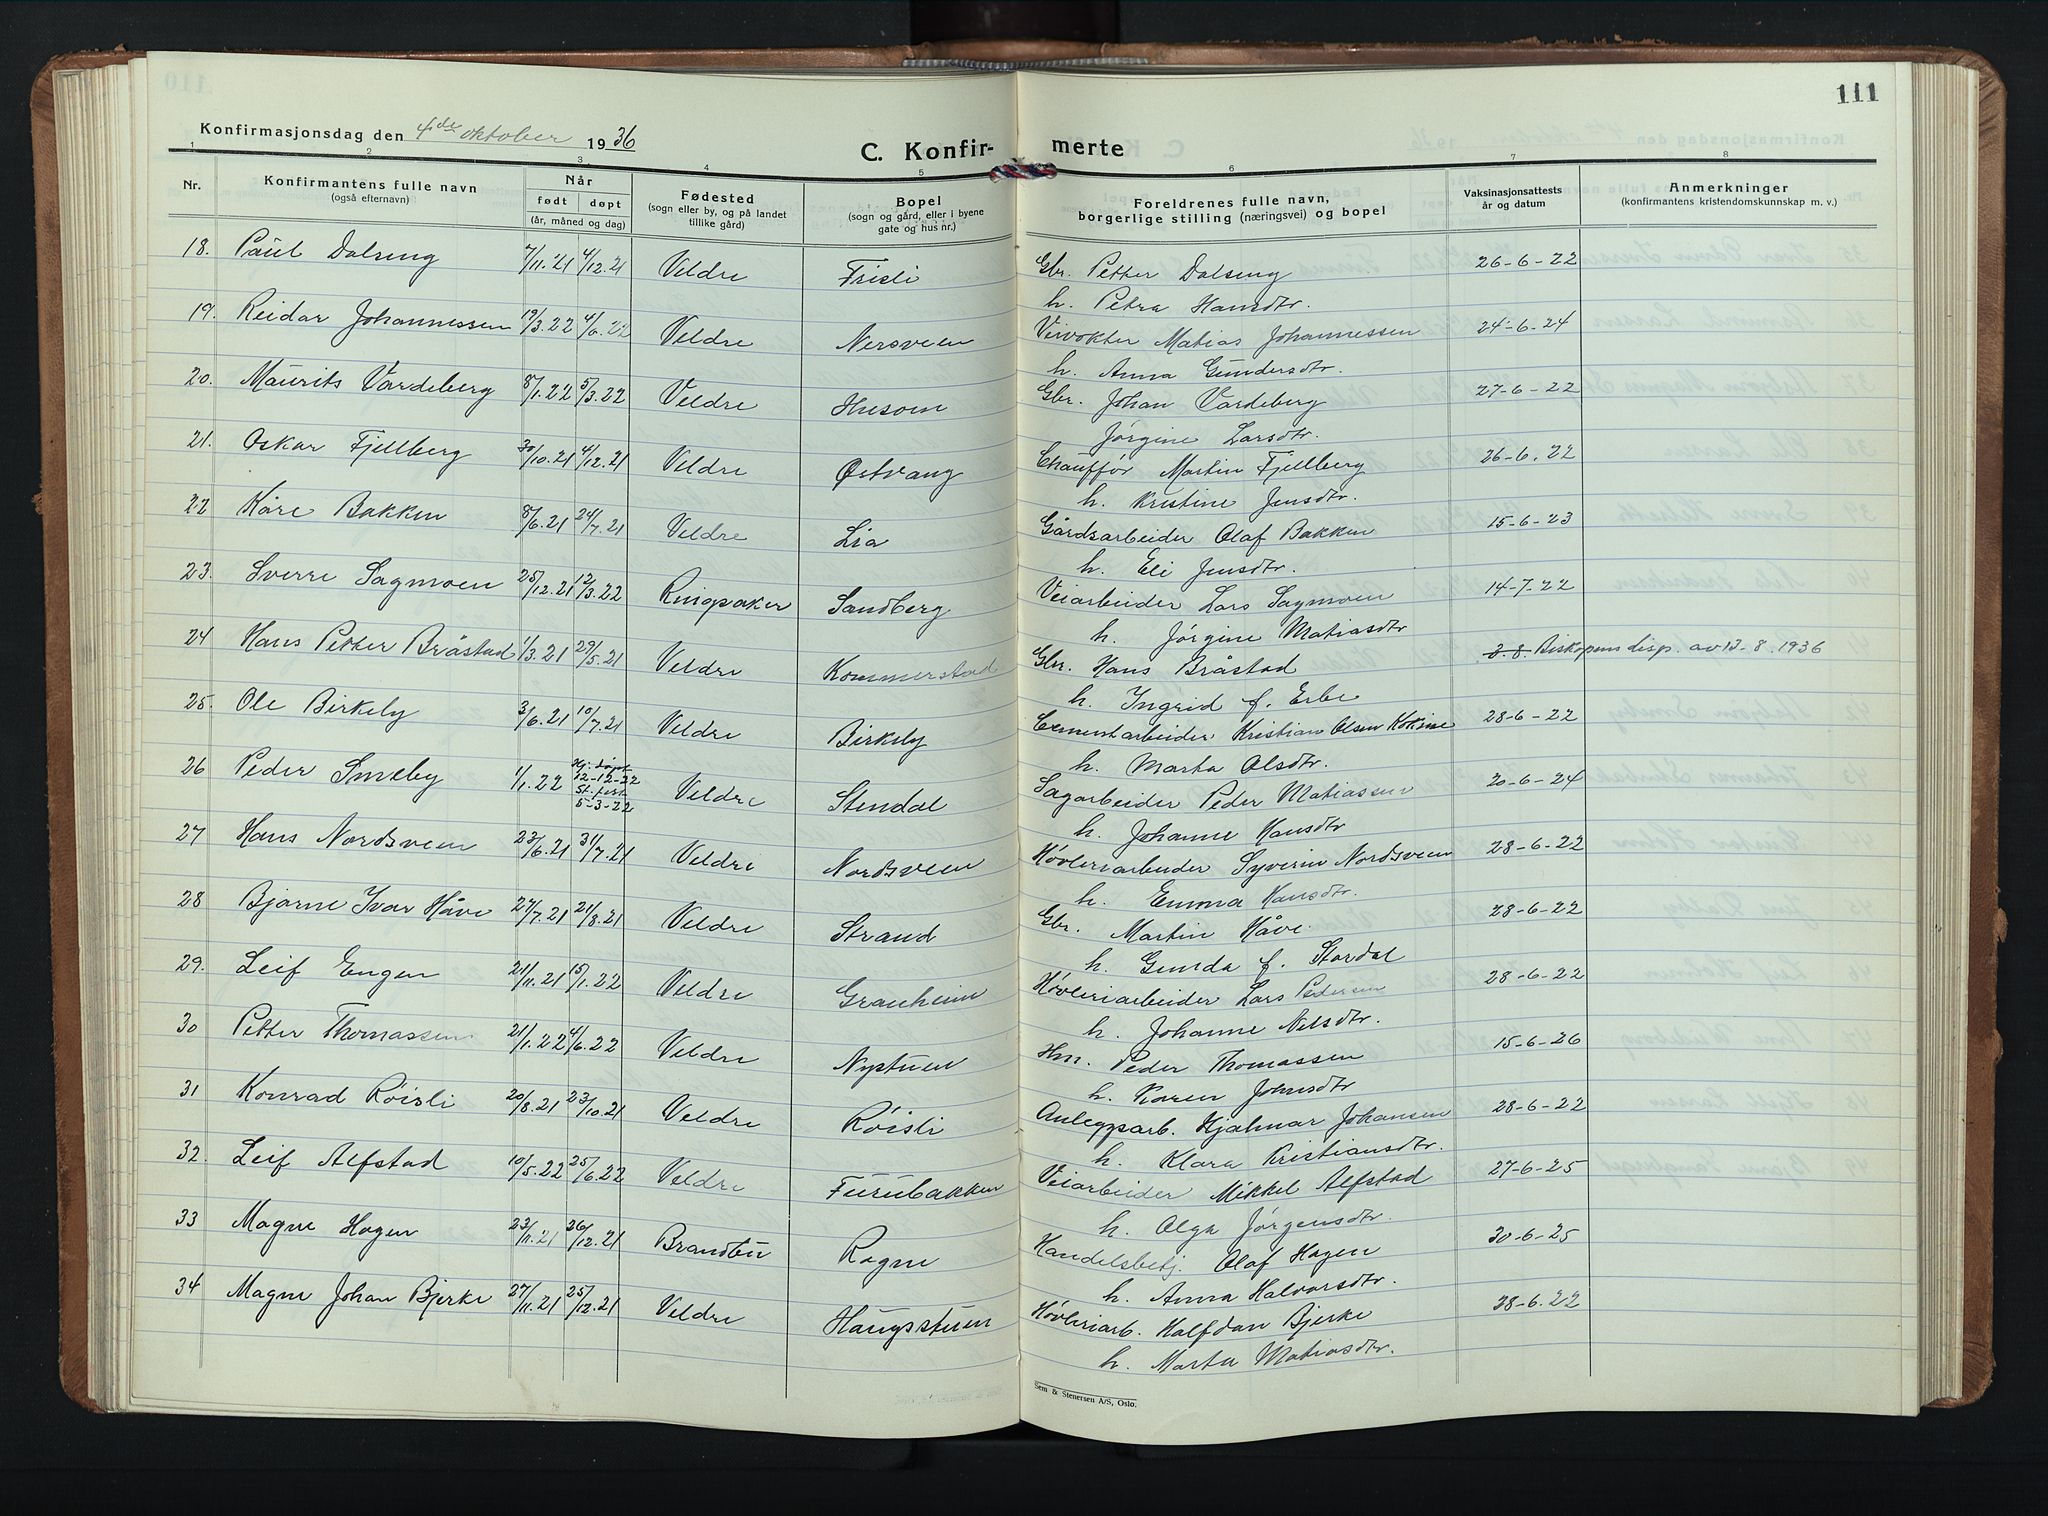 111
Konfirmasjonsdag den 4de oktober 1936
C. Konfir- merte
1 2 3 4 5 6 7 8
Nr. Konfirmantens fulle navn (også efternavn) Når født døpt (år, måned og dag) Fødested (sogn eller by, og på landet tillike gård) Bopel (sogn og gård, eller i byene gate og hus nr.) Foreldrenes fulle navn, borgerlige stilling (næringsvei) og bopel Vaksinasjonsattests år og datum Anmerkninger (konfirmantens kristendomskunnskap m. v.)
18. Paul Dalseng 7/11.21 4/12.21 Veldre Frisli Gbr. Petter Dalseng 26-6-22
h. Petra Hansdtr.
19. Reidar Johannessen 19/3.22 4/6.22 Veldre Nersveen Veivokter Matias Johannessen 24-6-24
h. Anna Gundersdtr.
20. Maurits Vardeberg 8/1.22 5/3.22 Veldre Husom Gbr. Johan Vardeberg 27-6-22
Jørgine Larsdtr.
21. Oskar Fjellberg 30/10.21 4/12.21 Veldre Østvang Chauffør Martin Fjellberg 26-6.22
h. Kristine Jensdtr.
22 Kåre Bakken 8/6.21 24/7.21 Veldre Lia Gårdsarbeider Olaf Bakken 15-6-23
h. Eli Jensdtr.
23. Sverre Sagmoen 25/12.21 12/3.22 Ringsaker Sandberg Veiarbeider Lars Sagmoen 14-7-22
h. Jørgine Matiasdtr
24 Hans Petter Bråstad 1/3.21 29/5.21 Veldre Kommerstad Gbr. Hans Bråstad 3.8. Biskopens disp. av 13-8.1936
h. Ingrid f. Erbe
25. Ole Birkely 3/6.21 10/7.21 Veldre Birkely Cementarbeider Kristian Olsen Koksine 28-6-22
h. Marta Olsdtr.
26 Peder Smeby 1/1.22 Hj. døpt 12-12-22 St. fest 5-3-22 Veldre Stendal Sagarbeider Peder Matiassen 20-6-24
h. Johanne Hansdtr
27 Hans Nordsveen 23/6.21 31/7.21 Veldre Nordsveen Høvleriarbeider Syverin Nordsveen 28-6-22
h. Emma Hansdtr.
28 Bjarne Ivar Håve 27/7.21 21/8.21 Veldre Strand Gbr. Martin Håve 28-6-22
h. Gunda f. Stordal
29. Leif Engen 21/11.21 15/1.22 Veldre Granheim Høvleriarbeider Lars Pedersen 28-6-22
h. Johanne Nilsdtr.
30 Petter Thomassen 21/1.22 4/6.22 Veldre Nystuen Hm. Peder Thomassen 15-6-26
h. Karen Johnsdtr
31 Konrad Røisli 20/8.21 23/10.21 Veldre Røisli Anleggsarb. Hjalmar Johansen 28-6-22
h. Klara Kristiansdtr.
32. Leif Alfstad 10/5.22 25/6.22 Veldre Furubakken Veiarbeider Mikkel Alfstad 27-6-25
h. Olga Jørgensdtr.
33 Magne Hagen 23/11.21 26/12.21 Brandbu Ragne Handelsbetj. Olaf Hagen 30-6-25
h. Anna Halvorsdtr.
34 Magne Johan Bjerke 27/11.21 25/12.21 Veldre Haugsstuen Høvleriarb. Halfdan Bjerke 28-6.22
h. Marta Matiasdtr.
Sem & Stenersen A/S, Oslo.